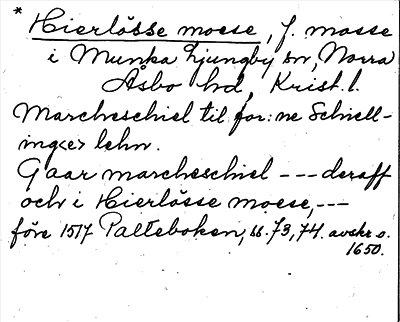 * Hierlösse moese, f. mosse
i Munka Ljungby sn, Norra
Åsbo hd, Krist. l.
Marcheschiel til for:ne Schiell-
ing<e> lehn.
Gaar marcheschiel --- deraff
och i Hierlösse moese, ---
före 1517 Palteboken, ss. 73, 74. avskr. o.
1650.